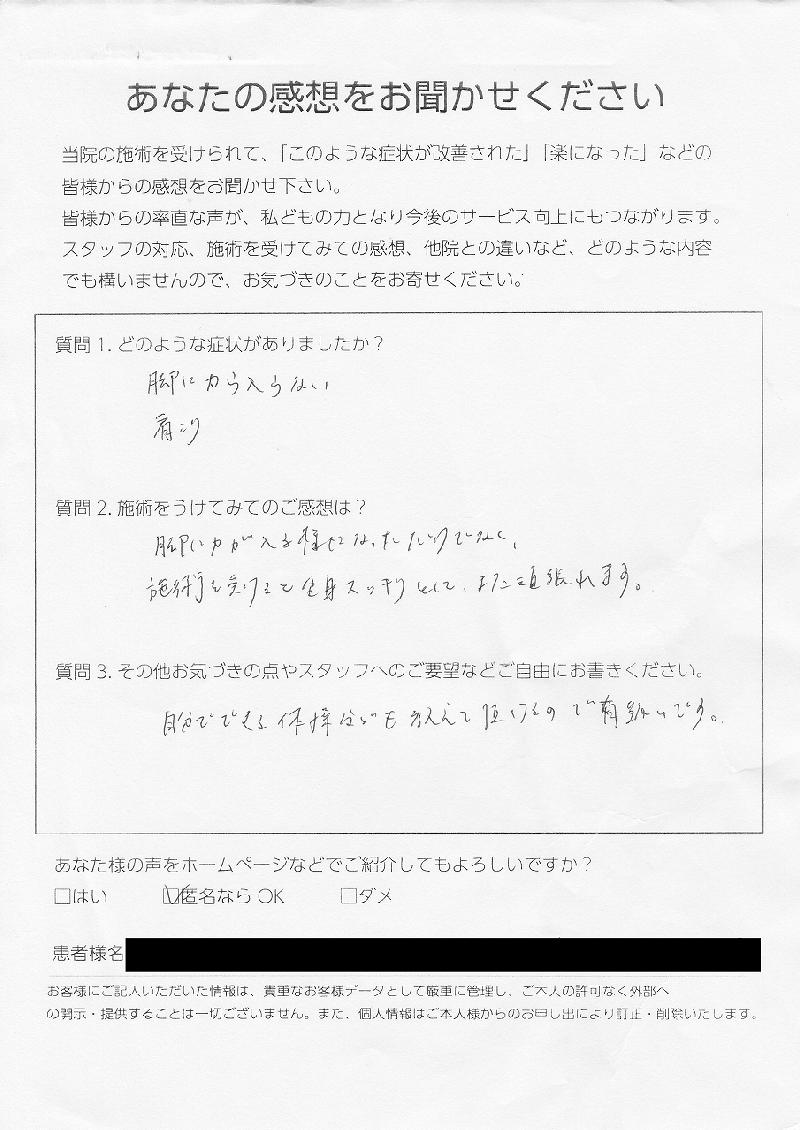 あなたの感想をお聞かせください
当院の施術を受けられて、「このような症状が改善された」「楽になった」などの
皆様からの感想をお聞かせ下さい。
皆様からの率直な声が、私どもの力となり今後のサービス向上にもつながります。
スタッフの対応、施術を受けてみての感想、他院との違いなど、どのような内容
でも構いませんので、お気づきのことをお寄せください。
質問1.どのような症状がありましたか？
脚に力が入らない
肩こり
質問2.施術をうけてみてのご感想は？
脚に力が入る様になっただけでなく、
施術を受けると全身スッキリとして、また頑張れます。
質問3.その他お気づきの点やスタッフへのご要望などご自由にお書きください。
自分でできる体操なども教えて頂けるので有難いです。
あなた様の声をホームページなどでご紹介してもよろしいですか？
□はい ☑匿名なら OK □ダメ
患者様名
お客様にご記入いただいた情報は、貴重なお客様データとして厳重に管理し、ご本人の許可なく外部へ
の開示・提供することは一切ございません。また、個人情報はご本人様からのお申し出により訂正・削除いたします。